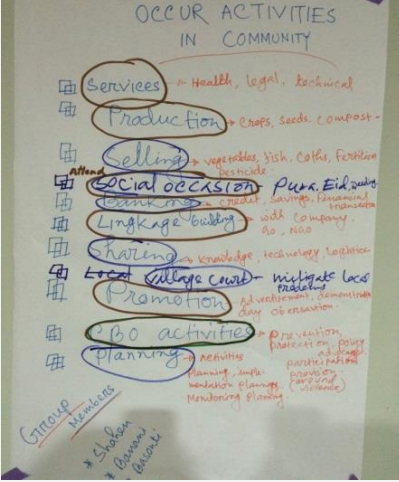 OCCUR ACTIVITIES
IN COMMUNITY
Services - Health, legal, technical
Production → Crops, seeds, compost -
Selling → vegetables, fish, Coths, Fertilizer
pesticide
Attend
Social occasion - Puza, Eid, wedding
Banking → credit, savings, Financial
Lingkage building → with company,
Go, NGO
Sharing → Knowledge, technology, Logistics
Local Village Court - mitigate local
Promotion → Advertisement, demonstration
day obersavation.
CBO activities → prevention,
protection, policy
advocacy,
Planning → Activities participation
planning, imple- provision
mentation planning, (around
Monitoring planing violence)
Group
Members
* Shahen
* Banani
Basonti